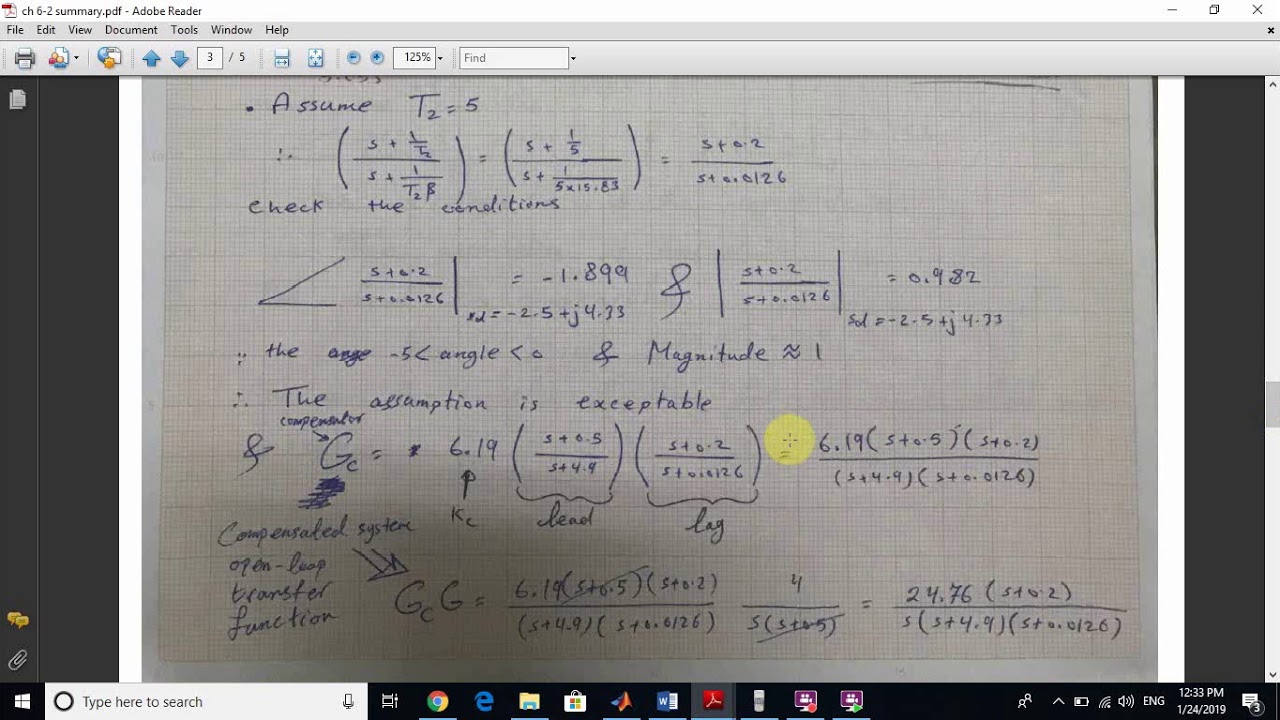 ch 6-2 summary.pdf - Adobe Reader
File Edit View Document Tools Window Help
3 / 5 125% Find
• Assume T₂ = 5
∴ ((s + 1/T₂)/(s + 1/(T₂β))) = ((s + 1/5)/(s + 1/(5×15.83))) = (s+0.2)/(s+0.0126)
check the conditions
∠ (s+0.2)/(s+0.0126) | sd = -2.5+j4.33 = -1.899 & | (s+0.2)/(s+0.0126) | sd = -2.5+j4.33 = 0.982
∵ the -5 < angle < 0 & Magnitude ≈ 1
∴ The assumption is exceptable
compensator
& Gc = 6.19 ((s+0.5)/(s+4.9)) ((s+0.2)/(s+0.0126)) = 6.19(s+0.5)(s+0.2)/((s+4.9)(s+0.0126))
Kc lead lag
Compensated system
open-loop
transfer
function
GcG = 6.19(s+0.5)(s+0.2)/((s+4.9)(s+0.0126)) 4/(s(s+0.5)) = 24.76(s+0.2)/(s(s+4.9)(s+0.0126))
Type here to search
ENG
12:33 PM
1/24/2019
3